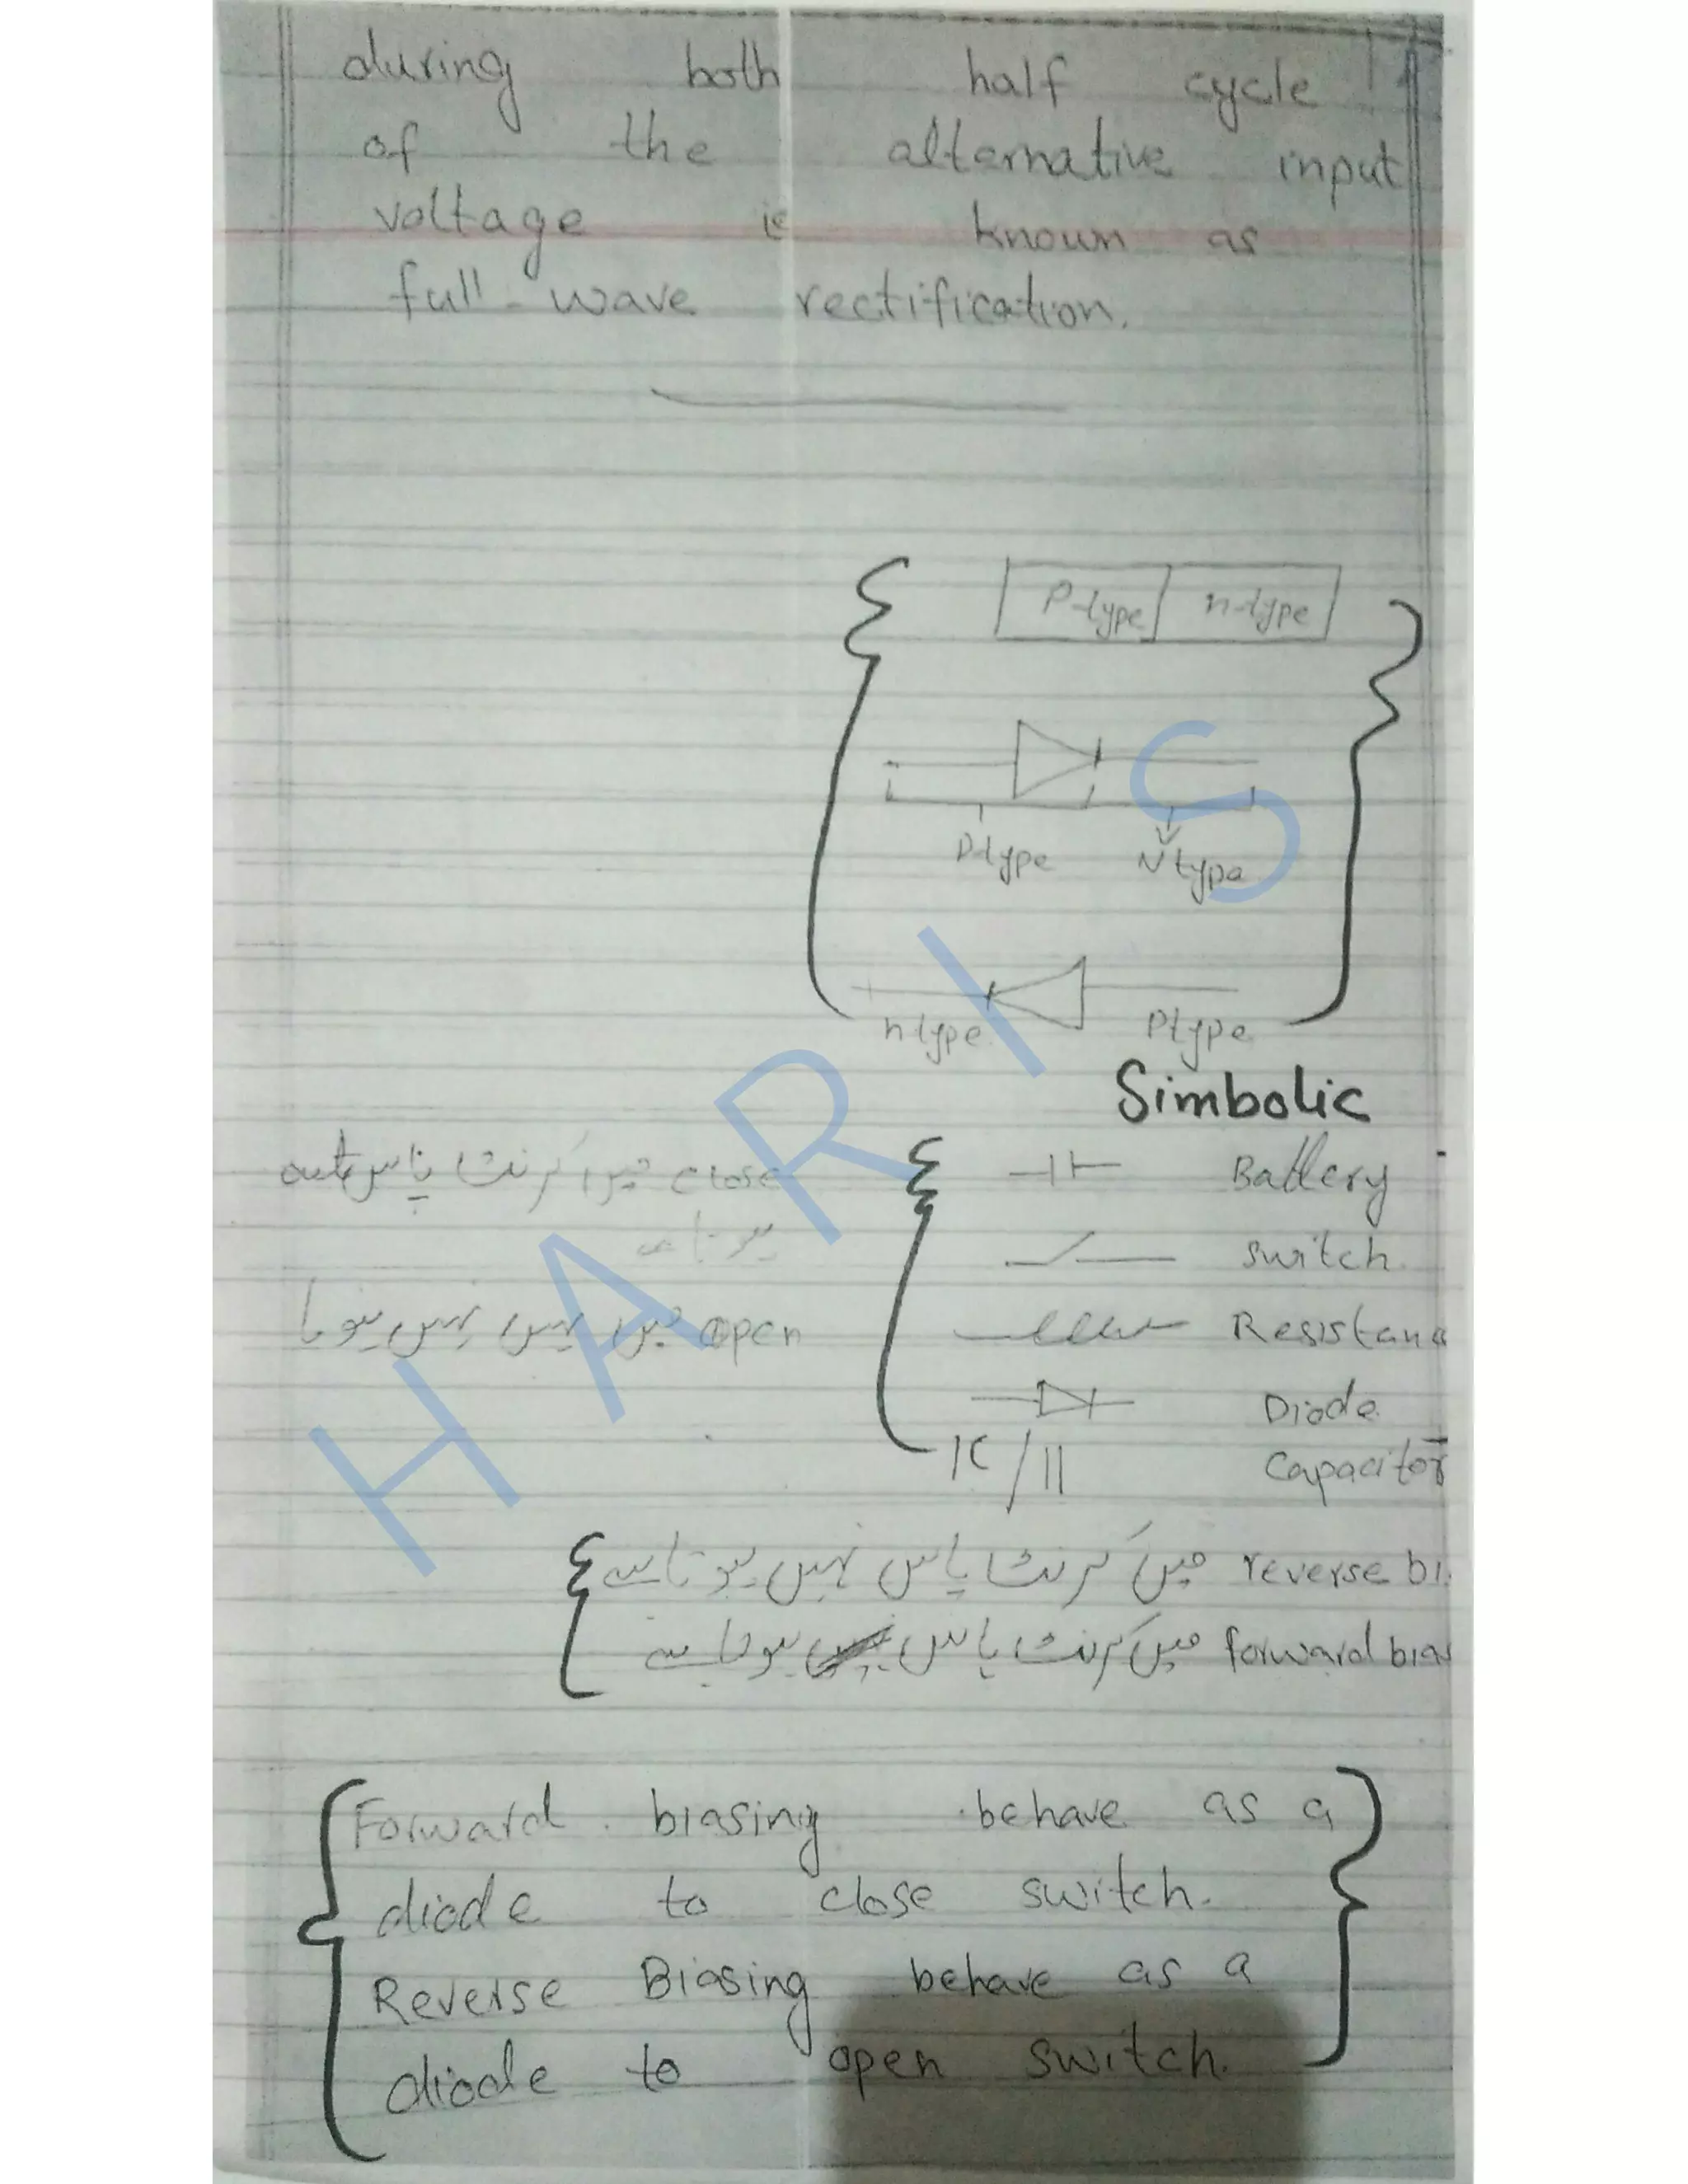 during both half cycle
of the alternative input
voltage is known as
full-wave rectification.
P-type n-type
P-type N type
n-type Ptype
Simbolic
Battery
close میں کرنٹ پاس
ہوتا ہے
switch
open میں نہیں ہوتا
Resistanc
Diode
Capacitor
reverse bi میں کرنٹ پاس نہیں ہوتا ہے
forward bias میں کرنٹ پاس ہوتا ہے
Forward biasing behave as a
diode to close switch.
Reverse Biasing behave as a
diode to open switch.
HARIS